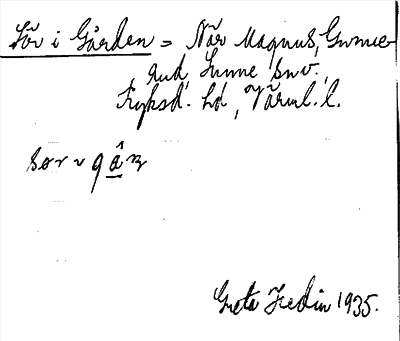 Sör i Gården = Når Magnus, Gunne-
rud, Sunne snv.,
Fryksd. hd, Värml. l.
Greta Hedin 1935.